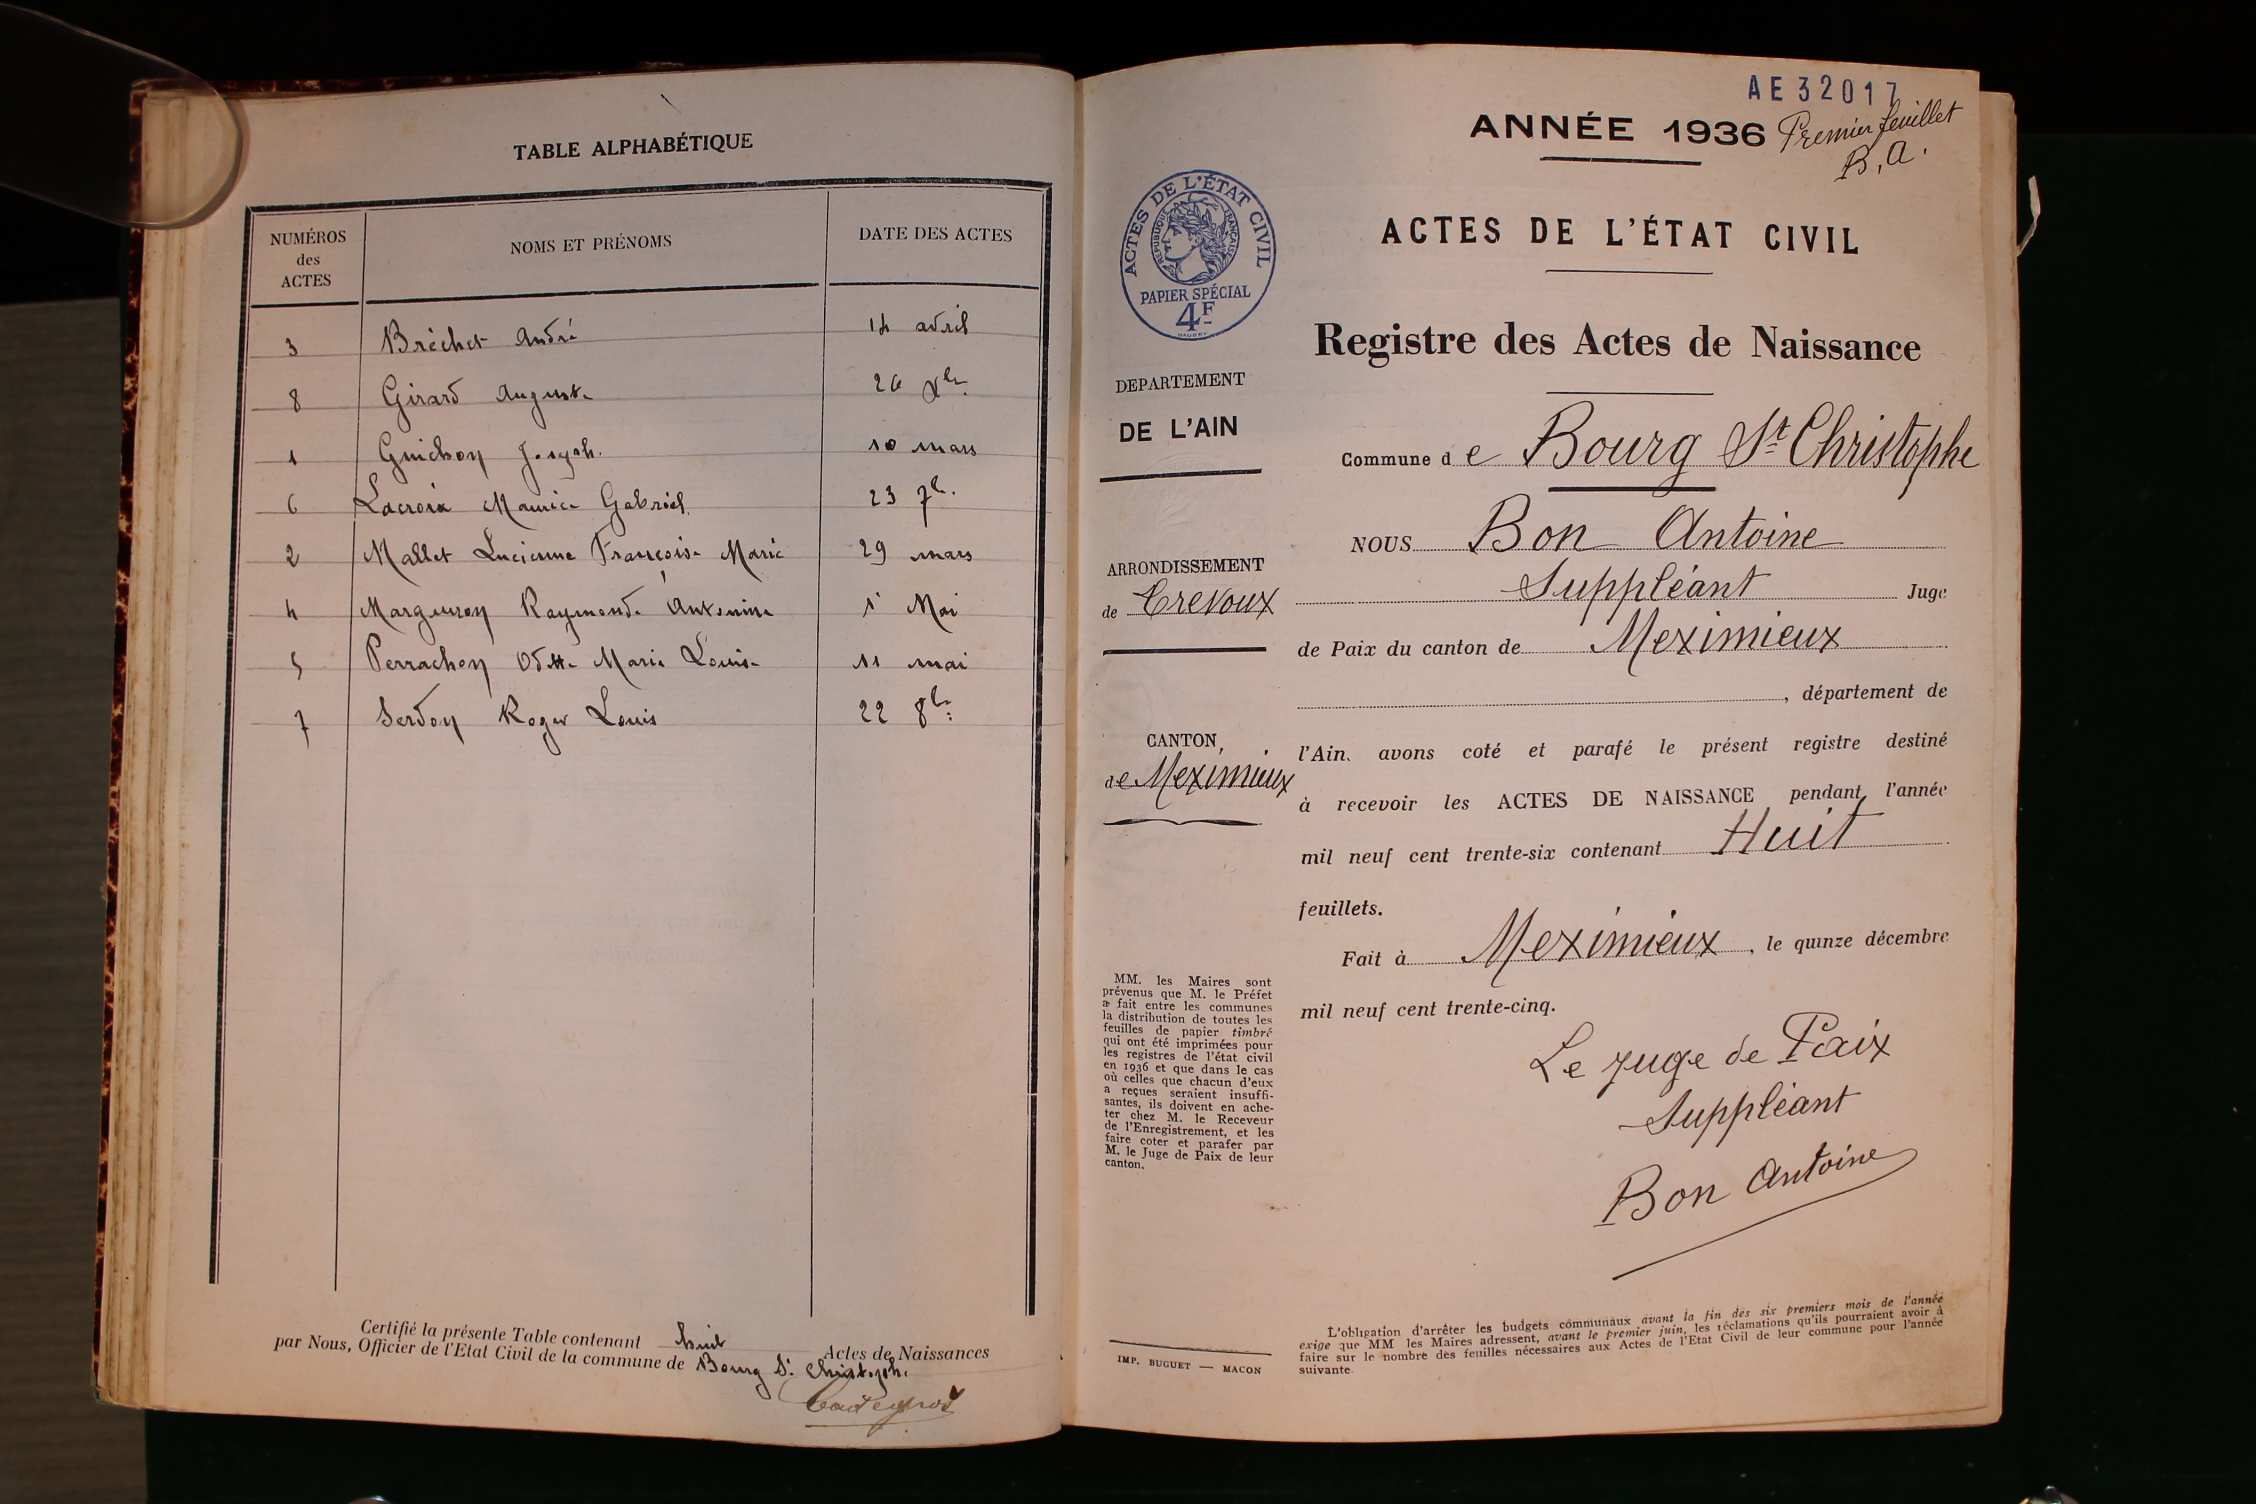 TABLE ALPHABÉTIQUE
NUMÉROS
des
ACTES
NOMS ET PRÉNOMS
DATE DES ACTES
3 Bréchet André 14 avril
8 Girard Auguste 26 Xbre
1 Guichon Joseph. 10 mars
6 Lacroix Maurice Gabriel 23 7b.
2 Mallet Lucienne Françoise Marie 29 mars
4 Margueron Raymonde Antonine 1r Mai
5 Perrachon Odette Marie Louise 11 mai
7 Serdon Roger Louis 22 8bre
Certifié la présente Table contenant huit Actes de Naissances
par Nous, Officier de l'Etat Civil de la commune de Bourg St Christophe
AE32017
ANNÉE 1936 Premier feuillet
B. A.
ACTES DE L'ÉTAT CIVIL
RÉPUBLIQUE FRANÇAISE
PAPIER SPÉCIAL
4F
ACTES DE L'ÉTAT CIVIL
Registre des Actes de Naissance
DEPARTEMENT
DE L'AIN
Commune de Bourg St Christophe
NOUS Bon Antoine
ARRONDISSEMENT
de Trevoux
Suppléant Juge
de Paix du canton de Meximieux
, département de
CANTON,
de Meximieux
l'Ain, avons coté et parafé le présent registre destiné
à recevoir les ACTES DE NAISSANCE pendant l'année
mil neuf cent trente-six contenant Huit
feuillets.
Fait à Meximieux, le quinze décembre
mil neuf cent trente-cinq.
Le juge de Paix
Suppléant
Bon Antoine
MM. les Maires sont
prévenus que M. le Préfet
a fait entre les communes
la distribution de toutes les
feuilles de papier timbré
qui ont été imprimées pour
les registres de l'état civil
en 1936 et que dans le cas
où celles que chacun d'eux
a reçues seraient insuffi-
santes, ils doivent en ache-
ter chez M. le Receveur
de l'Enregistrement, et les
faire coter et parafer par
M. le Juge de Paix de leur
canton.
IMP. BUGUET — MACON
L'obligation d'arrêter les budgets communaux avant la fin des six premiers mois de l'année
exige que MM les Maires adressent, avant le premier juin, les réclamations qu'ils pourraient avoir à
faire sur le nombre des feuilles nécessaires aux Actes de l'Etat Civil de leur commune pour l'année
suivante.